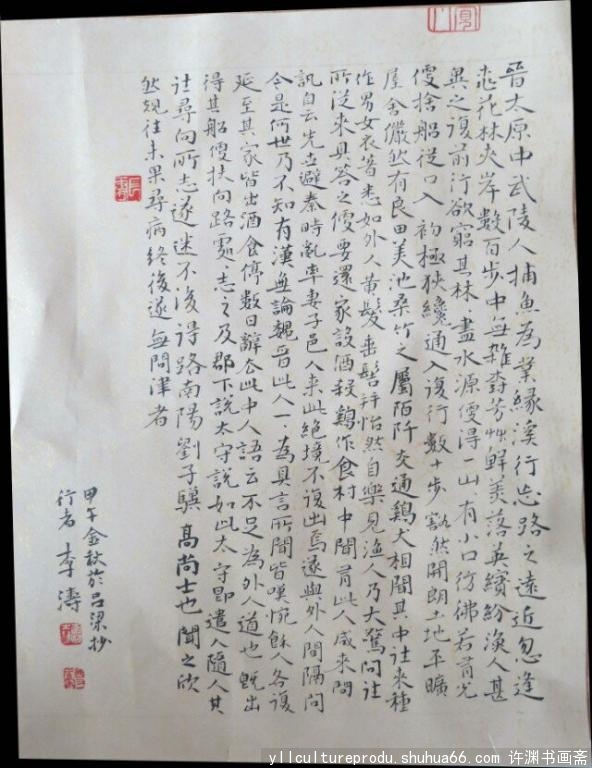 晋太原中武陵人捕魚為業緣溪行忘路之遠近忽逢
桃花林夾岸數百步中無雜樹芳艸鮮美落英繽紛漁人甚
異之復前行欲窮其林盡水源便得一山有小口彷彿若有光
便捨船從口入初極狹纔通人復行數十步豁然開朗土地平曠
屋舍儼然有良田美池桑竹之屬陌阡交通鷄犬相聞其中往來種
作男女衣著悉如外人黄髮垂髫并怡然自樂見漁人乃大驚問
所從來具答之便要還家設酒殺鷄作食村中聞有此人咸来問
訊自云先世避秦時亂率妻子邑人来此絶境不復出焉遂與外人間隔問
今是何世乃不知有漢無論魏晉此人一一為具言所聞皆嘆惋餘人各復
延至其家皆出酒食停數日辭去此中人語云不足為外人道也既出
得其船便扶向路處〻志之及郡下說太守說如此太守即遣人隨人其
往尋向所志遂迷不復得路南陽劉子驥高尚士也聞之欣
然規往未果尋病終後遂無問津者
甲午金秋於吕梁抄
行者 李濤
yllcultureprodu.shuhua66.com 许渊书画斋